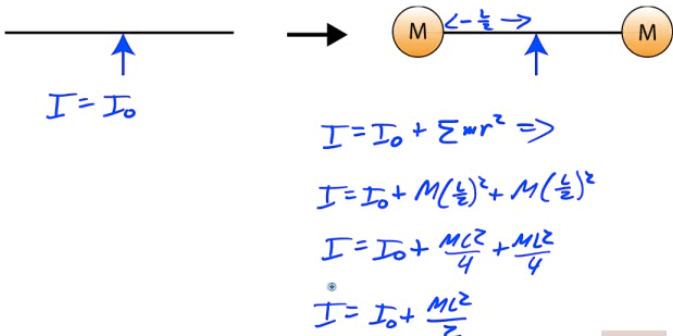 M <- L/2 -> M
I = I₀
I = I₀ + Σmr² =>
I = I₀ + M(L/2)² + M(L/2)²
I = I₀ + ML²/4 + ML²/4
I = I₀ + ML²/2